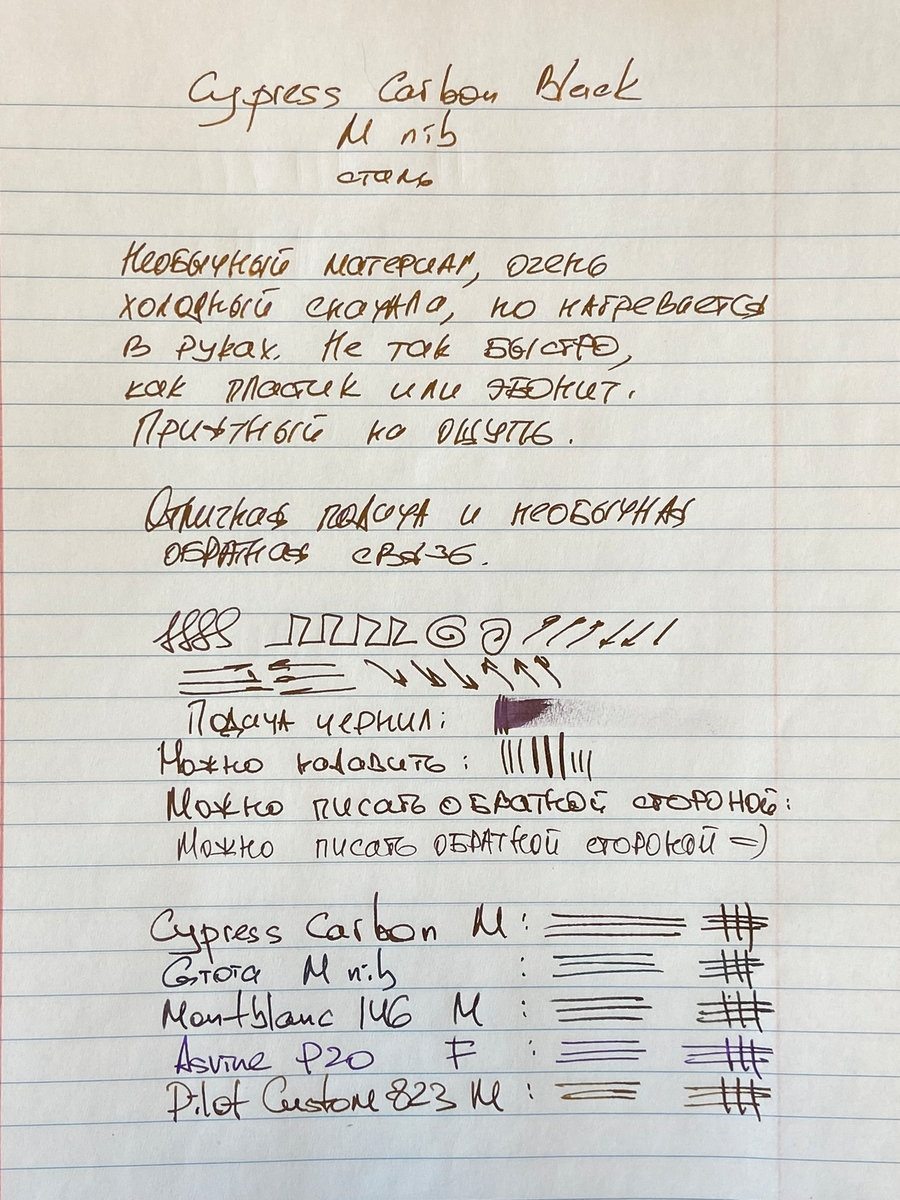 Cypress Carbon Black
M nib
сталь
Необычный материал, очень
холодный сначала, но нагревается
в руках. Не так быстро,
как пластик или эбонит.
Приятный на ощупь.
Отличная подача и необычная
обратная связь.
Подача чернил:
Можно надавить:
Можно писать обратной стороной:
Можно писать обратной стороной =)
Cypress Carbon M:
M nib :
Montblanc 146 M :
Asvine P20 F :
Pilot Custom 823 M :